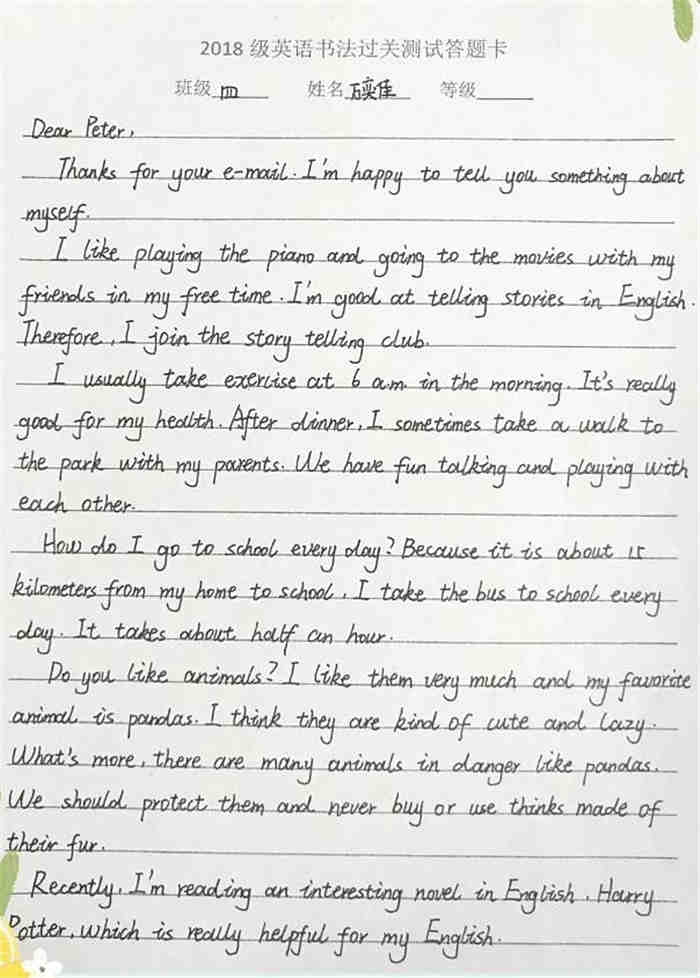 2018 级英语书法过关测试答题卡
班级 四 姓名 奕佳 等级
Dear Peter,
Thanks for your e-mail. I'm happy to tell you something about
myself.
I like playing the piano and going to the movies with my
friends in my free time. I'm good at telling stories in English.
Therefore, I join the story telling club.
I usually take exercise at 6 a.m. in the morning. It's really
good for my health. After dinner, I sometimes take a walk to
the park with my parents. We have fun talking and playing with
each other.
How do I go to school every day? Because it is about 15
kilometers from my home to school, I take the bus to school every
day. It takes about half an hour.
Do you like animals? I like them very much and my favorite
animal is pandas. I think they are kind of cute and lazy.
What's more, there are many animals in danger like pandas.
We should protect them and never buy or use thinks made of
their fur.
Recently, I'm reading an interesting novel in English, Harry
Potter, which is really helpful for my English.